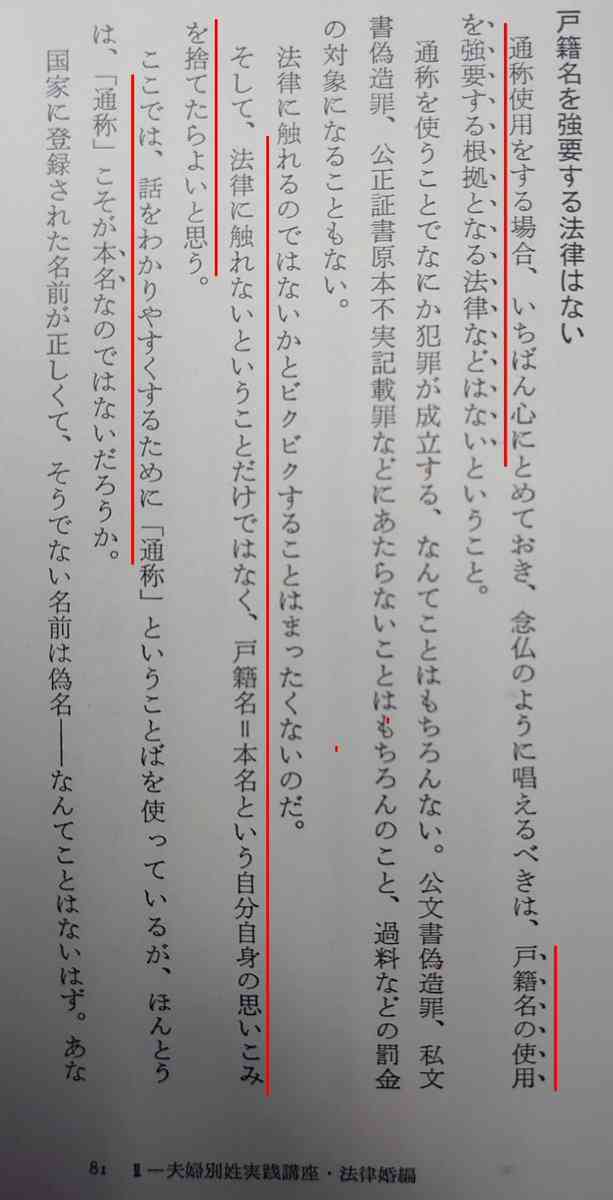 戸籍名を強要する法律はない
通称使用をする場合、いちばん心にとめておき、念仏のように唱えるべきは、戸籍名の使用
を強要する根拠となる法律などはないということ。
通称を使うことでなにか犯罪が成立する、なんてことはもちろんない。公文書偽造罪、私文
書偽造罪、公正証書原本不実記載罪などにあたらないことはもちろんのこと、過料などの罰金
の対象になることもない。
法律に触れるのではないかとビクビクすることはまったくないのだ。
そして、法律に触れないということだけではなく、戸籍名＝本名という自分自身の思いこみ
を捨てたらよいと思う。
ここでは、話をわかりやすくするために「通称」ということばを使っているが、ほんとう
は、「通称」こそが本名なのではないだろうか。
国家に登録された名前が正しくて、そうでない名前は偽名――なんてことはないはず。あな
81 Ⅱ―夫婦別姓実践講座・法律婚編